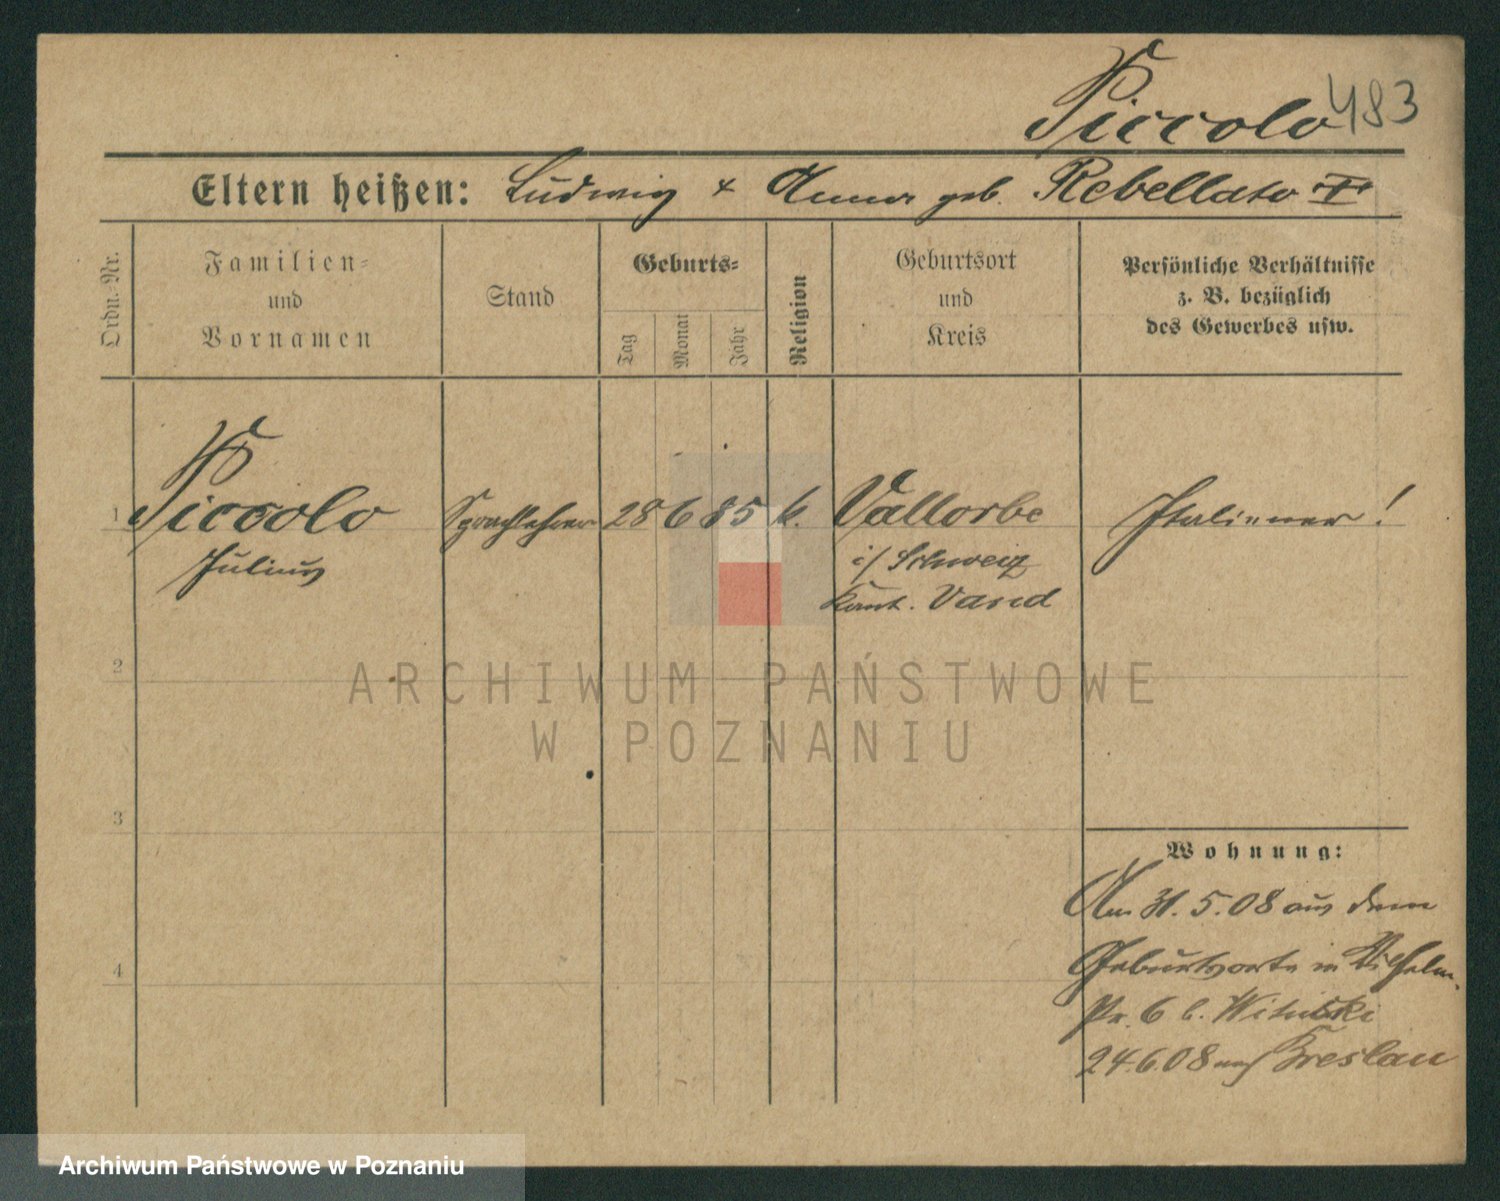 Piccolo 483
Eltern heißen: Ludwig + Anna geb. Rebellato
Ordn. Nr.
Familien-
und
Vornamen
Stand
Geburts-
Tag
Monat
Jahr
Religion
Geburtsort
und
Kreis
Persönliche Verhältnisse
z. B. bezüglich
des Gewerbes usw.
1 Piccolo Sprachlehrer 28 6 85 k. Vallorbe Italiener!
Julius i/ Schweiz
Kant. Vaud
2
ARCHIWUM PAŃSTWOWE
W POZNANIU
3
Wohnung:
Am 31.5.08 aus dem
Geburtsorte in Wilhelm-
4
Pr. 6 b. Witulski
24.6.08 nach Breslau
Archiwum Państwowe w Poznaniu